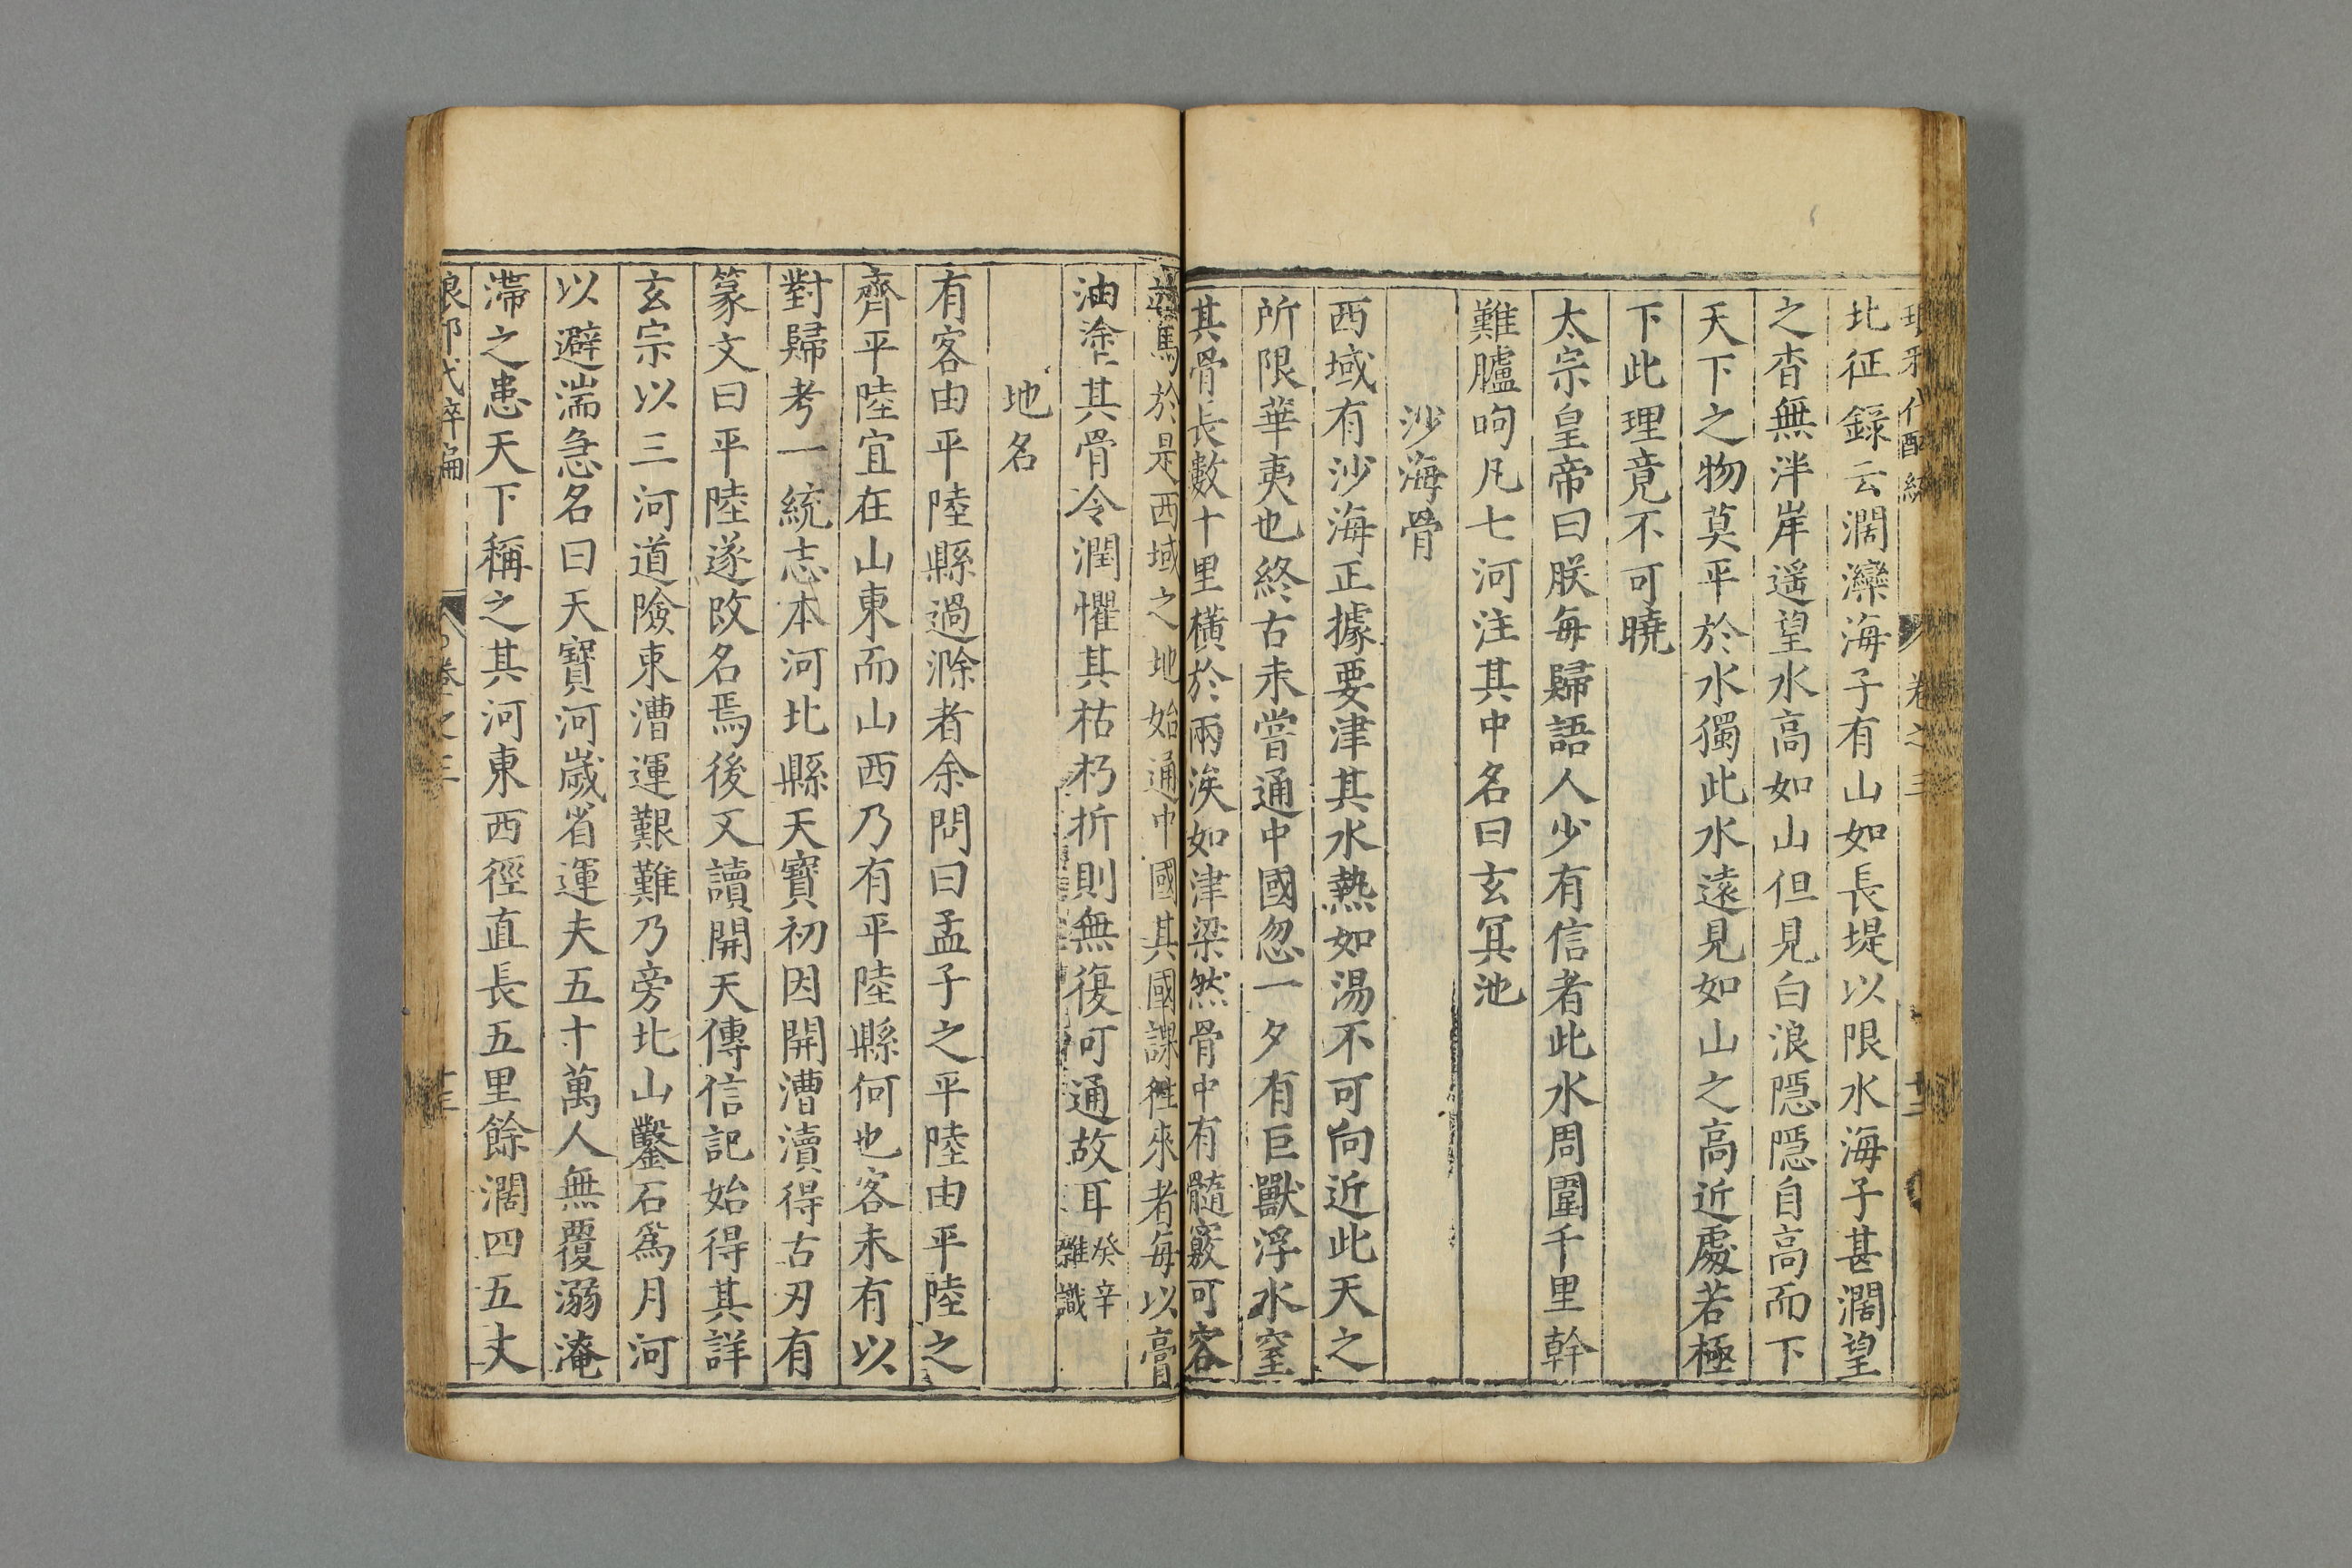 北征錄云濶灤海子有山如長堤以限水海子甚濶望
之杳無泮岸遥望水高如山但見白浪隠隠自高而下
天下之物莫平於水獨此水遠見如山之高近處若極
下此理竟不可曉
太宗皇帝曰朕毎歸語人少有信者此水周圍千里幹
難臚呴凡七河注其中名曰玄冥池
沙海骨
西域有沙海正據要津其水熱如湯不可向近此天之
所限華夷也終古未嘗通中國忽一夕有巨獸浮水窒
其骨長數十里橫於兩涘如津梁然骨中有髓竅可容
並馬於是西域之地始通中國其國課徃來者毎以膏
油塗其骨令潤懼其枯朽折則無復可通故耳
癸辛
雜識
地名
有客由平陸縣過滁者余問曰孟子之平陸由平陸之
齊平陸宜在山東而山西乃有平陸縣何也客未有以
對歸考一統志本河北縣天寳初因開漕瀆得古刃有
篆文曰平陸遂改名焉後又讀開天傳信記始得其詳
玄宗以三河道險束漕運艱難乃旁北山鑿石爲月河
以避湍急名曰天寳河嵗省運夫五十萬人無覆溺淹
滯之患天下稱之其河東西徑直長五里餘濶四五丈
卷之三